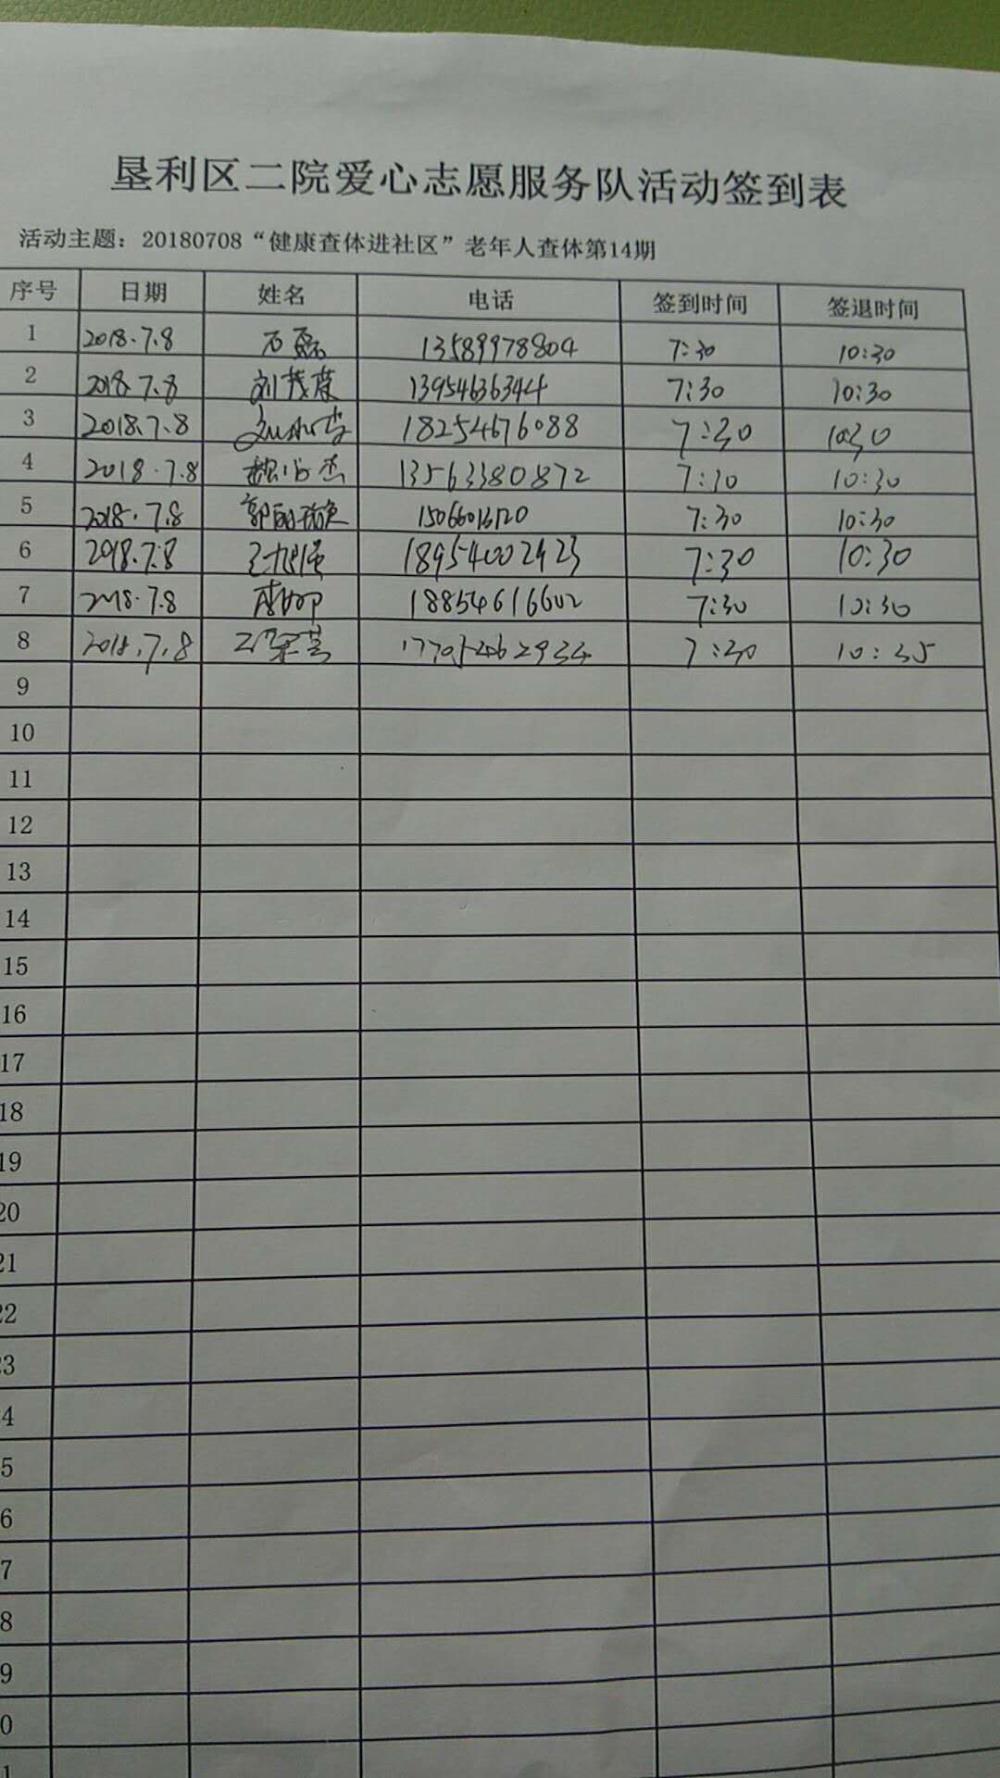 垦利区二院爱心志愿服务队活动签到表
活动主题：20180708“健康查体进社区”老年人查体第14期
序号 日期 姓名 电话 签到时间 签退时间
1 2018.7.8 石磊 13589978804 7:30 10:30
2 2018.7.8 刘茂葆 13954636344 7:30 10:30
3 2018.7.8 18254676088 7:30 10:30
4 2018.7.8 13563380872 7:30 10:30
5 2018.7.8 15066016120 7:30 10:30
6 2018.7.8 18954002923 7:30 10:30
7 2018.7.8 18854616602 7:30 10:30
8 2018.7.8 7:30 10:35
9
10
11
12
13
14
15
16
17
18
19
20
21
22
23
4
5
6
7
8
9
0
1